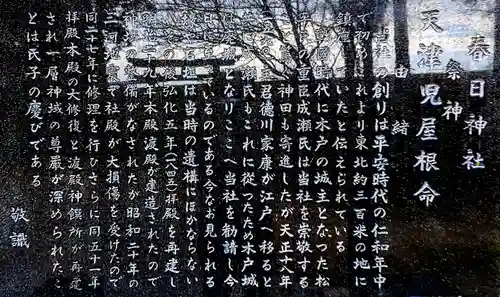 春日神社
祭神
天津児屋根命
由緒
の創りは平安時代の仁和年中
で初めこれより東北約三百米の地に
鎮座 ていたと伝えられている
時代に木戸の城主となった松
の重臣成瀬氏は当社を崇敬する
神田も寄進したが天正十八年
君徳川家康が江戸へ移ると
瀬氏もこれに従つたため木戸城
となりこゝへ当社を勧請し今
いるのである今なお見られる
垣は当時の遺構にほかならない
弘化五年(一八四五)拝殿を再建し
十九年本殿渡殿が建造されたので
備がなされたが昭和二十年の
三河 で社殿が大損傷を受けたので
同二十七年に修理を行ひさらに同五十一年
拝殿本殿の大修復と渡殿神饌所が再建
され一層神域の尊厳が深められたこ
とは氏子の慶びである
敬識